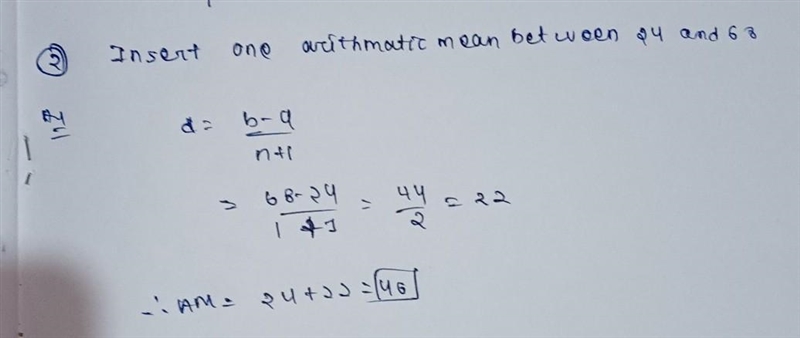 ② Insert one arithmatic mean between 24 and 68
d = b-a / n+1
= 68-24 / 1+1 = 44/2 = 22
∴ AM = 24+22 = 46